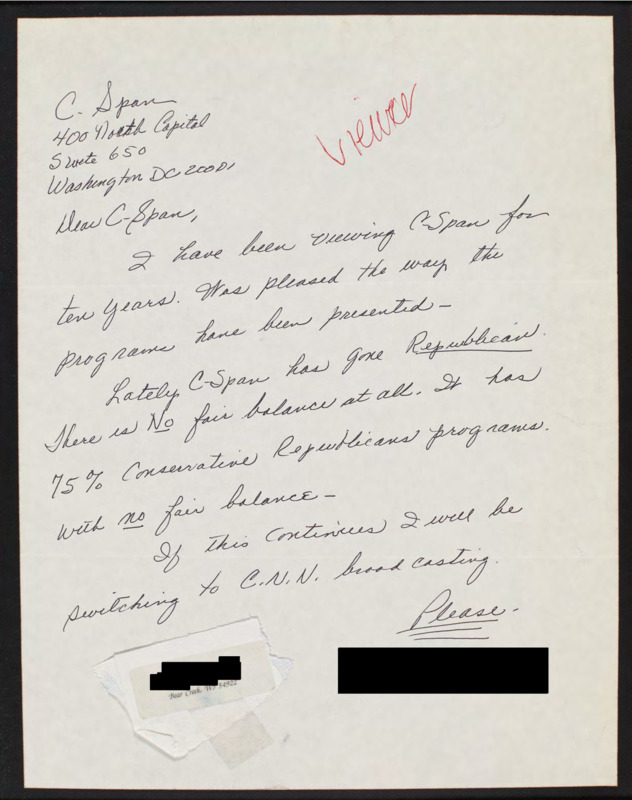 C. Span
400 North Capital
Suete 650
Washington DC 20001
viewer
Dear C-Span,
I have been viewing C-Span for
ten years. Was pleased the way the
programs have been presented—
Lately C-Span has gone Republican.
There is No fair balance at all. It has
75% Conservative Republicans programs.
with no fair balance—
If this continues I will be
switching to C.N.N. broad casting.
Please.
Bear Creek, WI 54922